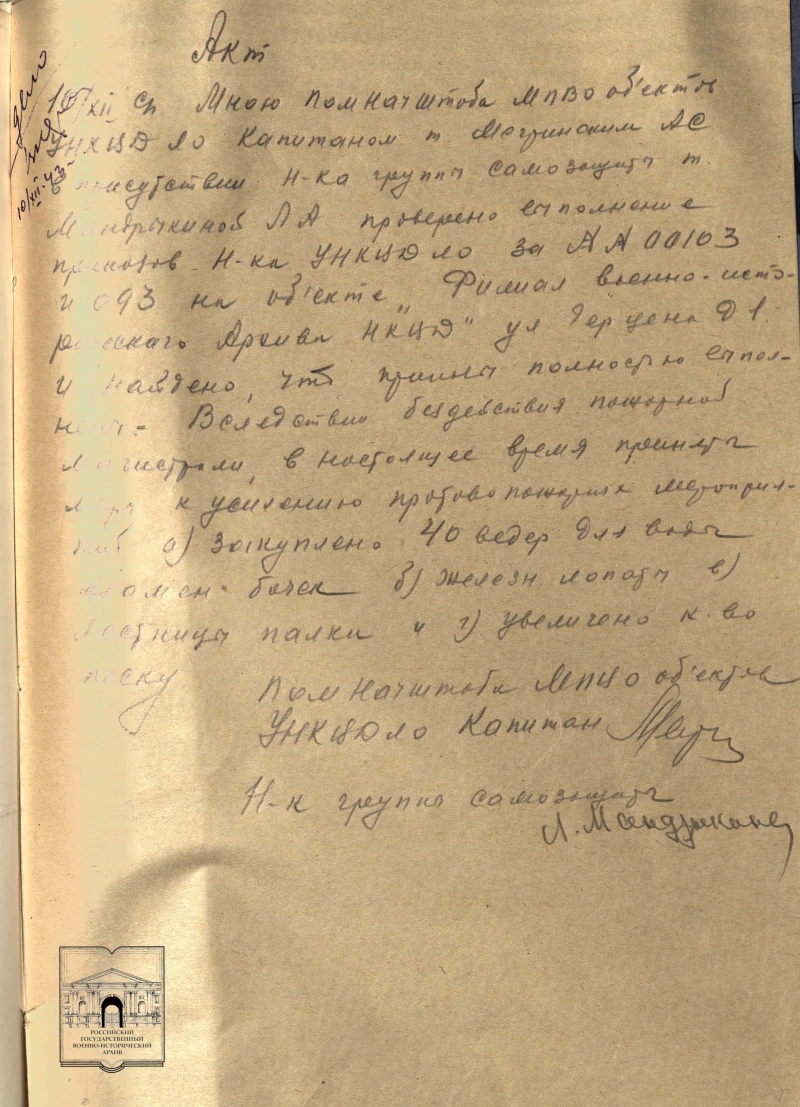 Акт
дело
10/XII-43
/XII с/г Мною Помначштоба МПВО об'ектов
УНКВД ЛО Капитаном т. АС
в присутствии Н-ка группы самозащиты т.
Мандрыкиной Л А проверено выполнение
приказов Н-ка УНКВД ЛО за 00103
и 093 на об'екте „Филиал военно-исто-
рического Архива НКВД" ул Герцена д 1.
и найдено, что приказы полностью выпол-
нены - Вследствии бездействия пожарной
магистрали, в настоящее время приняты
меры к усилению противопожарных мероприя-
тий а) закуплено 40 ведер для воды
взамен бочек б) железн лопаты в)
лестницы палки и г) увеличено к-во
песку
Помначштоба МПВО об'ектов
УНКВД ЛО Капитан
Н-к группы самозащиты
Л. Мандрыкина
РОССИЙСКИЙ
ГОСУДАРСТВЕННЫЙ
ВОЕННО-ИСТОРИЧЕСКИЙ
АРХИВ